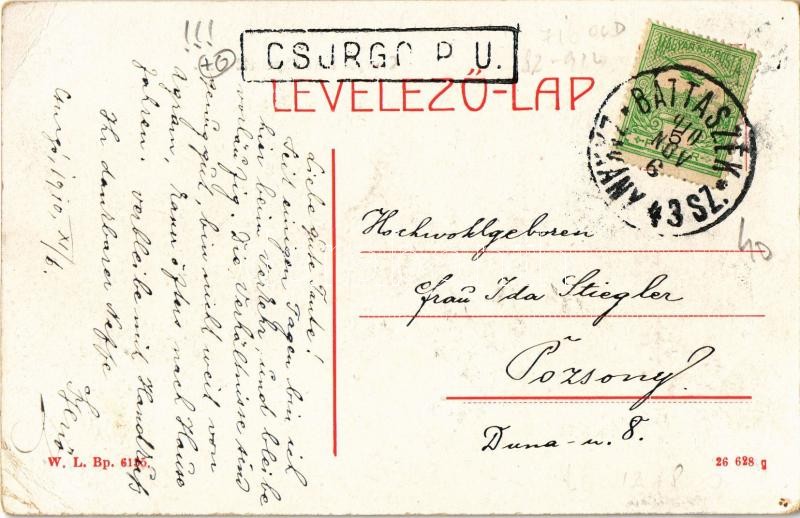 !!!
CSURGÓ P. U.
LEVELEZŐ-LAP
MAGYAR KIR. POSTA
BÁTTASZÉK
910
NOV
6
43 SZ.
40
Liebe gute Tante!
Seit einigen Tagen bin ich
hier beim Verkehr, und bleibe
vorläufig. Die Verhältnisse sind
genug gut, bin nicht weit von
Agram, kann öfters nach Hause
fahren. verbleibe mit Handkuß
Ihr dankbarer Neffe
Jenő
Csurgó, 1910, XI/6.
Hochwohlgeboren
Frau Ida Stiegler
Pozsony
Duna-u. 8.
W. L. Bp. 6125.
26 628 g